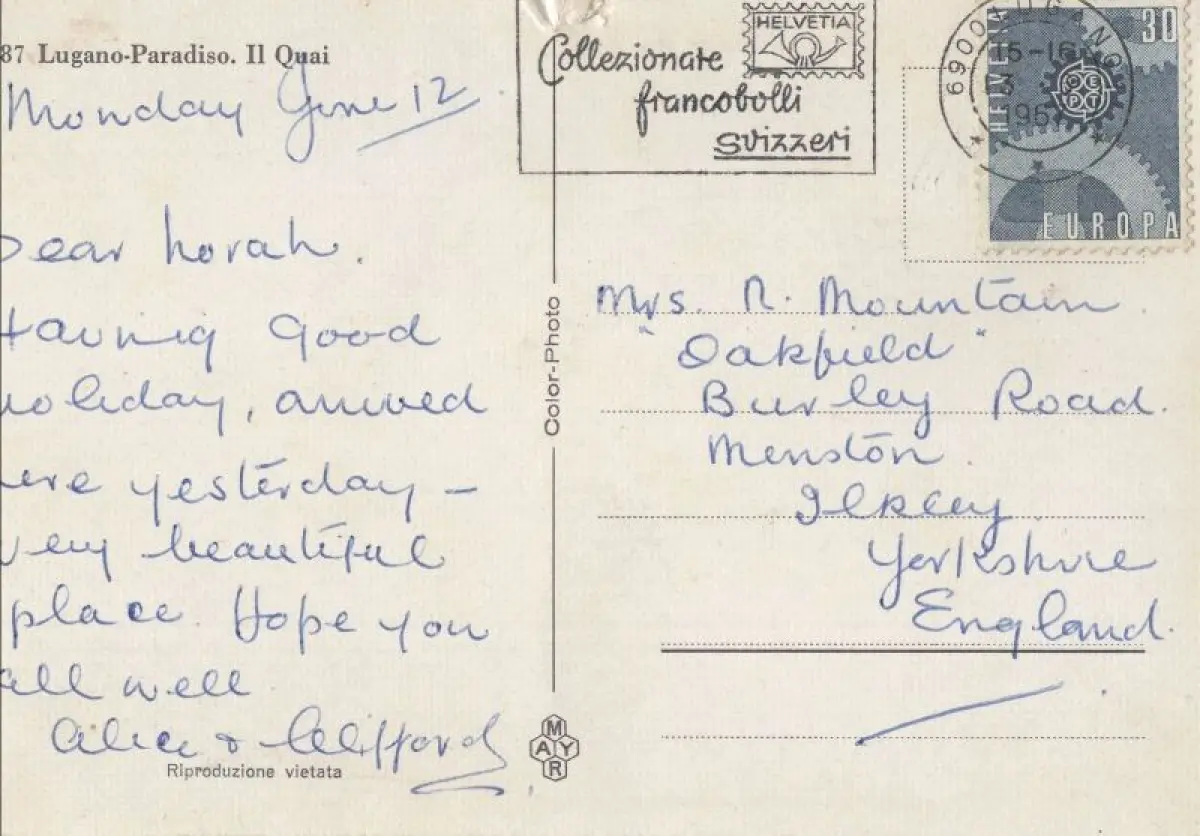 87 Lugano-Paradiso. Il Quai
Monday June 12
Dear Norah.
Having good
holiday, arrived
here yesterday -
very beautiful
place. Hope you
all well
Alice & Clifford
Riproduzione vietata
Color-Photo
MAYR
Collezionate
francobolli
svizzeri
HELVETIA
6900 LUGANO
15-16
HELVETIA
30
CEPT
EUROPA
Mrs. N. Mountain
"Oakfield"
Burley Road.
Menston.
Ilkley
Yorkshire
England.